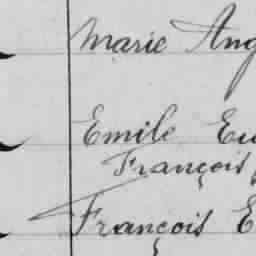 Marie Ang
Emile Eu
François
François E